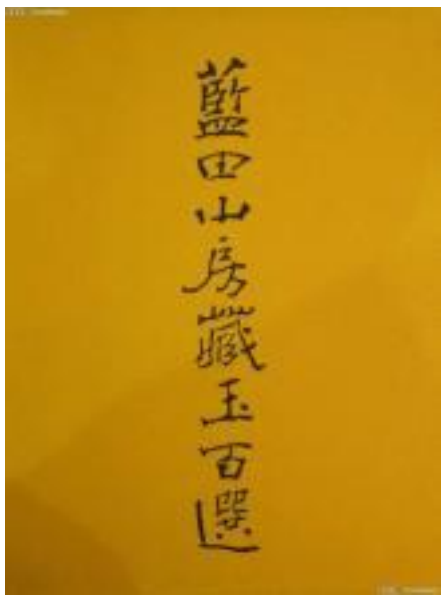 藍田山房藏玉百選